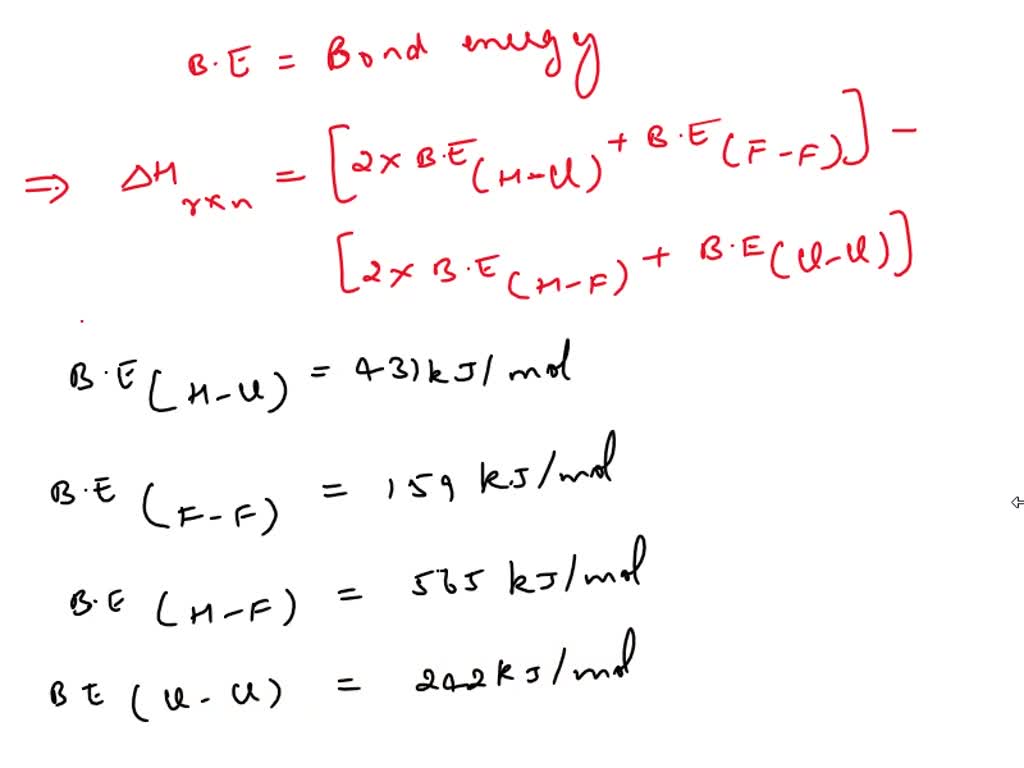 B.E = Bond energy
⇒ ΔH rxn = [2 × B.E (H-Cl) + B.E (F-F)] -
[2 × B.E (H-F) + B.E (Cl-Cl)]
B.E (H-Cl) = 431 kJ/mol
B.E (F-F) = 159 kJ/mol
B.E (H-F) = 565 kJ/mol
B E (Cl-Cl) = 242 kJ/mol